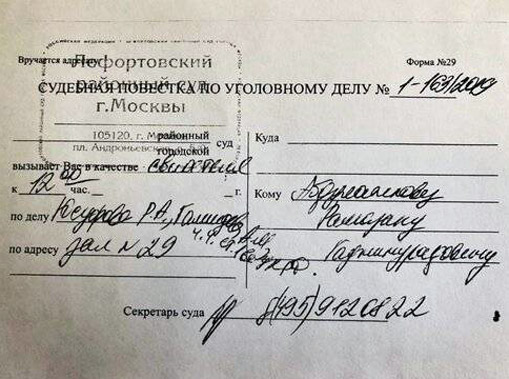 Вручается адресату
Форма №29
Лефортовский
районный суд
г.Москвы
СУДЕБНАЯ ПОВЕСТКА ПО УГОЛОВНОМУ ДЕЛУ № 1-163/2019
105120, г. Москва
районный
городской суд
Куда
вызывает Вас в качестве свидетеля
к 12 00 час. г.
Кому
Рамазану
по делу Р.А.,
по адресу зал N 29
Гаджимурадовичу
Секретарь суда 8(495)9120822